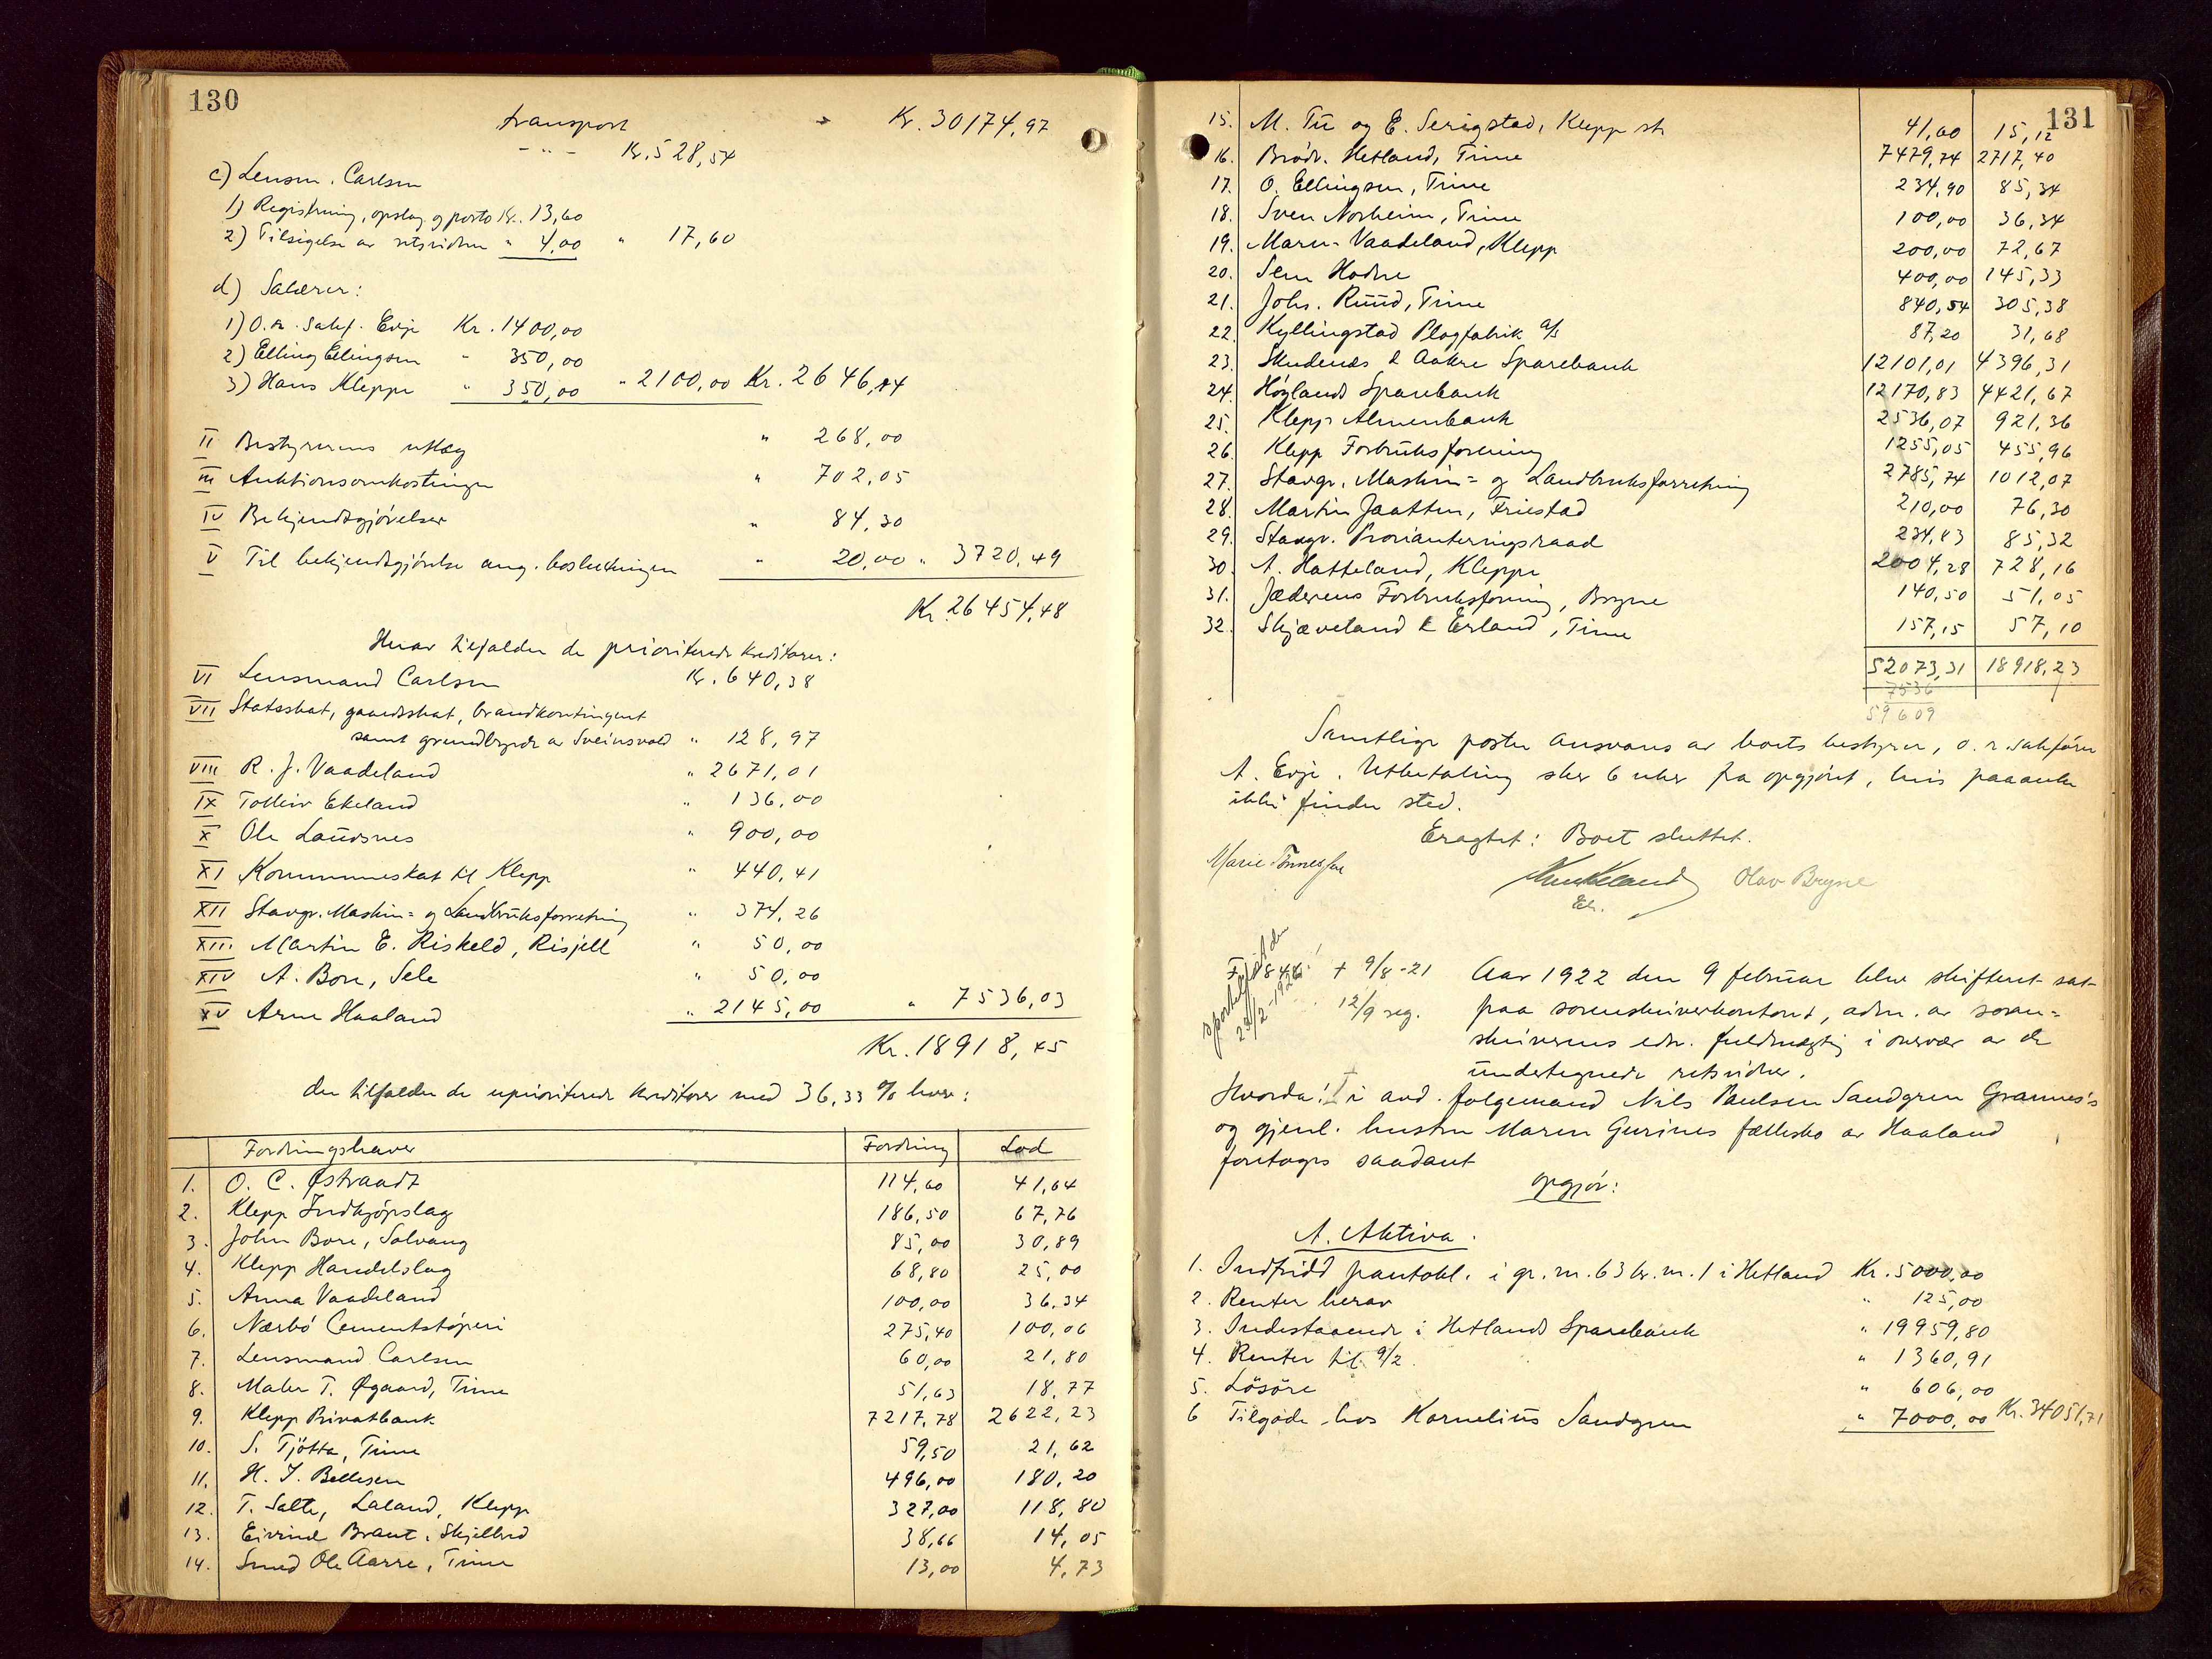 130
transport " Kr. 30174,97
- " - Kr. 528,54
c) Lensm. Carlsen
1) Registrering, opslag og porto Kr. 13,60
2) Tilsigelse av retsvidner " 4,00 " 17,60
d) Salærer:
1) O.r. sakf. Evje Kr. 1400,00
2) Elling Ellingsen " 350,00
3) Hans Kleppe " 350,00 " 2100,00 Kr. 2646,14
II Bestyrerens utlæg " 268,00
III Auktionsomkostninger " 702,05
IV Bekjendtgjörelser " 84,30
V Til bekjendtgjörelse ang. bosluttningen " 20,00 " 3720,49
Kr. 26454,48
Herav tilfalder de prioriterede kreditorer:
VI Lensmand Carlsen Kr. 640,38
VII Statsskat, gaardsskat, brandkontingent
samt grundbygde av Sveinsvold " 128,97
VIII R. J. Vaadeland " 2671,01
IX Tolleiv Ekeland " 136,00
X Ole Laudsnes " 900,00
XI Kommuneskat til Klepp " 440,41
XII Stavgr. Maskin= og Landbruksforretning " 374,26
XIII. Martin E. Riskeld, Risjell " 50,00
XIV A. Bore, Sele " 50,00
XV Arne Haaland " 2145,00 " 7536,03
Kr. 18918,45
der tilfalder de uprioriterede kreditorer med 36,33 % hver:
Fordringshaver Fordring Lod
1. O. C. Østraadt 114,60 41,64
2. Klepp Indkjöpslag 186,50 67,76
3. John Bore, Solvang 85,00 30,89
4. Klepp Handelslag 68,80 25,00
5. Anna Vaadeland 100,00 36,34
6. Nærbö Cementstöperi 275,40 100,06
7. Lensmand Carlsen 60,00 21,80
8. Maler T. Øgaard, Time 51,63 18,77
9. Klepp Privatbank 7217,78 2622,23
10. S. Tjötta, Time 59,50 21,62
11. H. J. Bellesen 496,00 180,20
12. T. Salte, Laland, Klepp 327,00 118,80
13. Eivind Braut, Skjelbred 38,66 14,05
14. Smed Ole Aarre, Time 13,00 4,73
131
15. M. Tu og E. Serigstad, Klepp st. 41,60 15,12
16. Brødr. Hetland, Time 7479,74 2717,40
17. O. Ellingsen, Time 234,90 85,34
18. Sven Norheim, Time 100,00 36,34
19. Maren Vaadeland, Klepp 200,00 72,67
20. Sem Hodne 400,00 145,33
21. Johs. Ruud, Time 840,54 305,38
22. Kyllingstad Plogfabrik a/s 87,20 31,68
23. Skudenes & Aakre Sparebank 12101,01 4396,31
24. Höylands Sparebank 12170,83 4421,67
25. Klepp Almenbank 2536,07 921,36
26. Klepp Forbruksforening 1255,05 455,96
27. Stavgr. Maskin= og Landbruksforretning 2785,74 1012,07
28. Martin Jaatten, Friestad 210,00 76,30
29. Stavgr. Provianteringsraad 234,83 85,32
30. A. Hatteland, Kleppe 2004,28 728,16
31. Jæderens Forbruksforening, Bryne 140,50 51,05
32. Skjæveland & Erland, Time 157,15 57,10
52073,31 18918,23
7536
59609
Samtlige poster ansvares av boets bestyrer, o.r. sakförer
A. Evje. Utbetaling sker 6 uker fra opgjöret, hvis paaanke
ikke finder sted.
Eragtet: Boet sluttet.
Marie Tönnessen Olav Bryne
Edr.
+ 9/8-21 Aar 1922 den 9 februar blev skifteret sat
12/9 reg. paa sorenskriverkontoret, adm. av soren=
skriverens edsv. fuldmægtig i overvær av de
undertegnede retsvidner.
Hvorda: I i avd. følgemand Nils Paulsen Sandgren Grannes's
og gjenl. hustru Maren Gurines fællesbo av Haaland
foretoges saadant
opgjør:
A. Aktiva.
1. Indfridd pantobl. i gr. nr. 63 br. nr. 1 i Hetland Kr. 5000,00
2. Renter herav " 125,00
3. Indestaaende i Hetlands Sparebank " 19959,80
4. Renter til 9/2. " 1360,91
5. Lösöre " 606,00
6 Tilgode hos Kornelius Sandgren " 7000,00 Kr. 34051,71